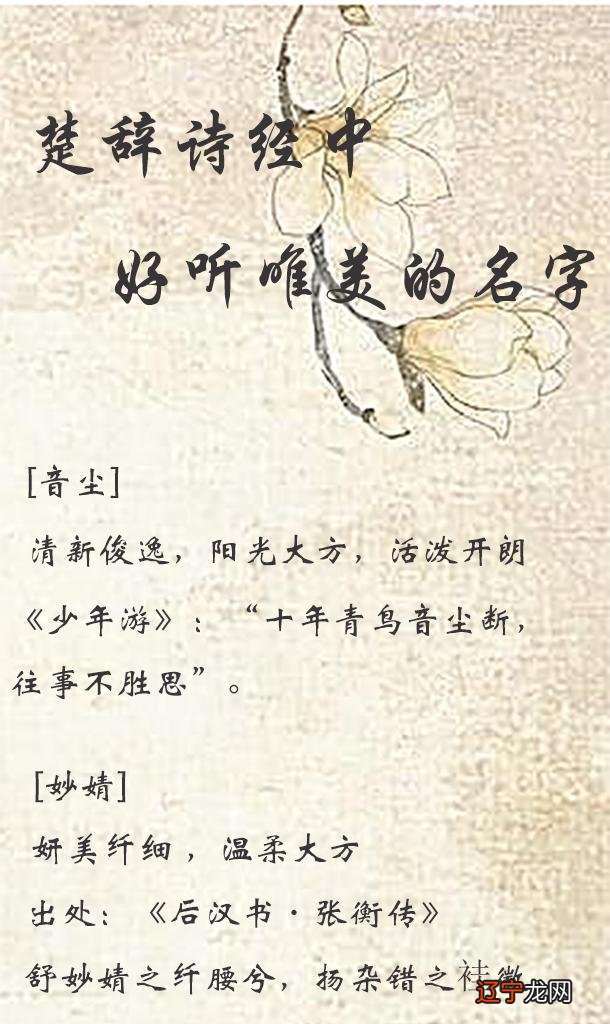 楚辞诗经中
好听唯美的名字
[音尘]
清新俊逸，阳光大方，活泼开朗
《少年游》：“十年青鸟音尘断，
往事不胜思”。
[妙婧]
妍美纤细，温柔大方
出处：《后汉书·张衡传》
舒妙婧之纤腰兮，扬杂错之袿徽
辽宁龙网